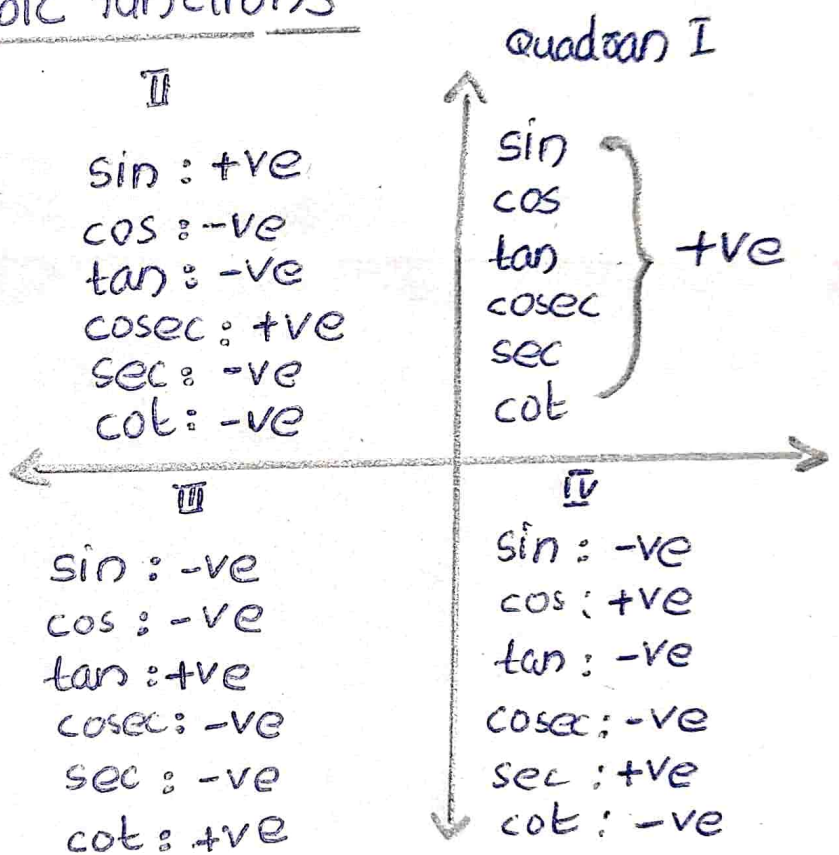 functions
Quadran I
II
sin : +ve
cos : -ve
tan : -ve
cosec : +ve
sec : -ve
cot : -ve
sin
cos
tan
cosec
sec
cot
+ve
III
sin : -ve
cos : -ve
tan : +ve
cosec : -ve
sec : -ve
cot : +ve
IV
sin : -ve
cos : +ve
tan : -ve
cosec : -ve
sec : +ve
cot : -ve